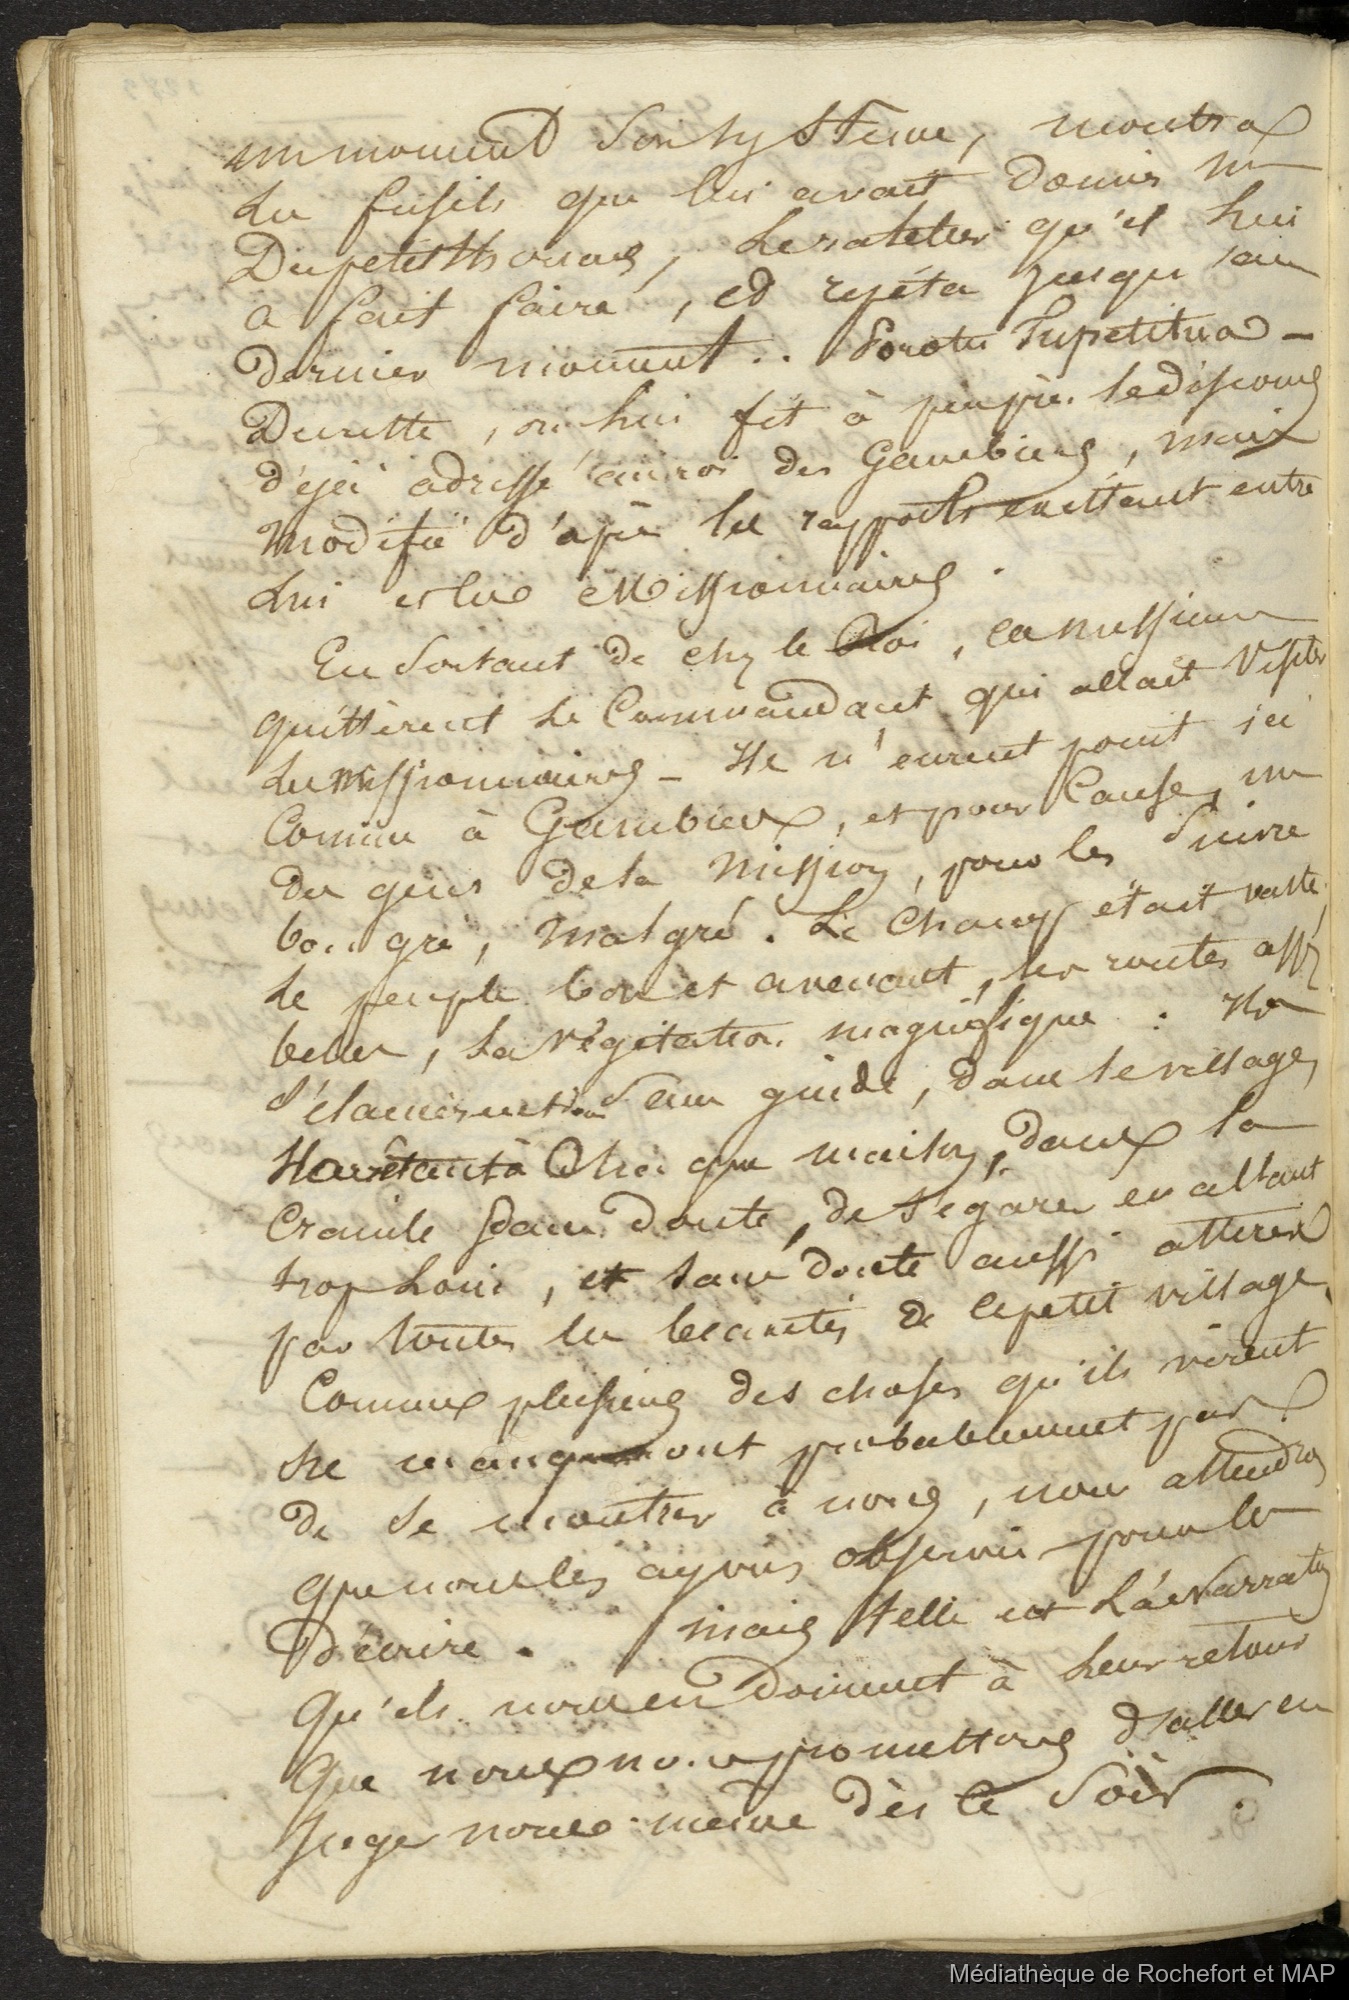 un moment son systeme, montra
les fusils que lui avait donnés Mr
Dupetitthouars, le ratelier qu'il lui
a fait faire, et répéta jusqu'au
dernier moment..
Durette, on lui fit à peuprès le discours
déjà adressé au roi des Gambiers, mais
modifié d'après les rapports existant entre
lui et les Missionnaires.
En sortant de chez le Roi, ces messieurs
quittèrent le Commandant qui allait visiter
les missionnaires - Ils n'eurent point ici
comme à Gambier, et pour cause, un
des gens de la Mission, pour les suivre
bon gré, malgré. Le champ était vaste,
le peuple bon et avenant, les routes assez
belles, la végétation magnifique : Ils
s'élancèrent sans guide, dans le village,
s'arrêtant à chaque maison, dans la
crainte sans doute, de s'égarer en allant
trop loin, et sans doute aussi attirés
par toutes les beautés de ce petit village.
Comme plusieurs des choses qu'ils virent
ne manqueront probablement pas
de se montrer à nous, nous attendrons
que nous les ayons observées pour les
décrire. Mais telle est la narration
qu'ils nous en donnent à leur retour
que nous nous promettons d'aller en
juger nous-même dès le soir.
Médiathèque de Rochefort et MAP